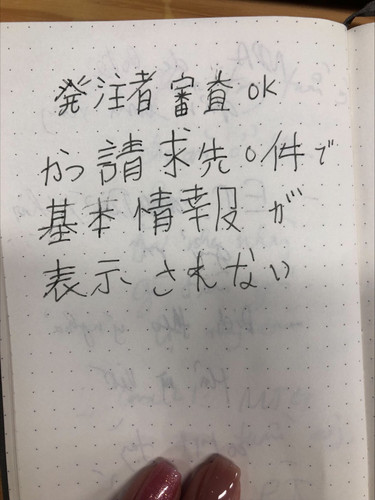 発注者審査OK
かつ請求先0件で
基本情報が
表示されない